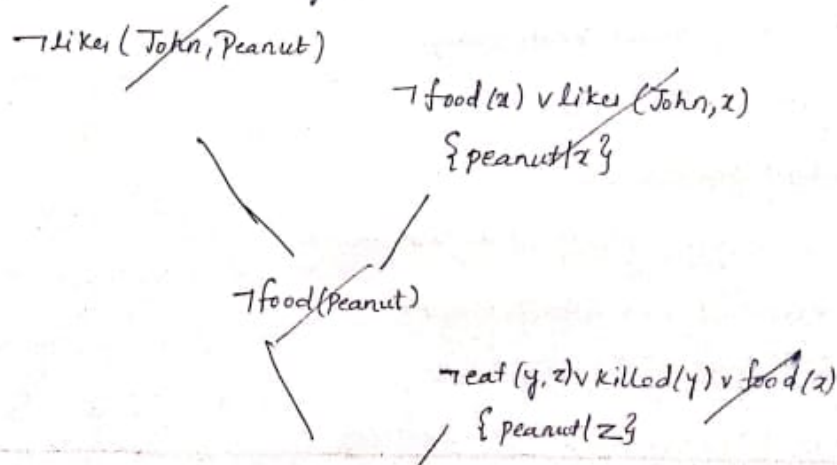 ¬likes (John, Peanut)
¬food(x) v likes (John, x)
{peanut/x}
¬food(Peanut)
¬eat (y, z) v killed(y) v food(z)
{peanut/z}